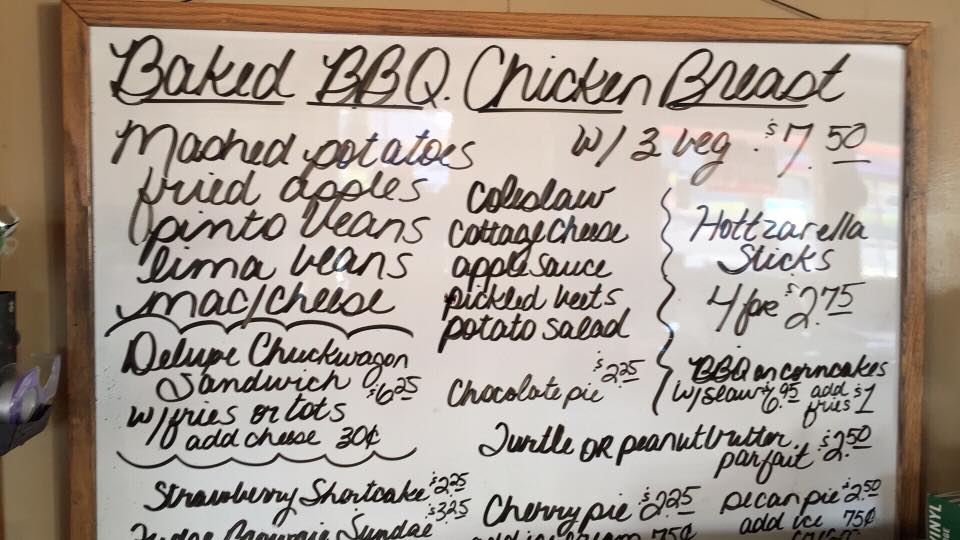 Baked BBQ Chicken Breast
w/ 3 veg. $7.50
Mashed potatoes
fried apples
pinto beans
lima beans
mac/cheese
coleslaw
cottage cheese
applesauce
pickled beets
potato salad
Hottzarella
Sticks
4 for $2.75
Deluxe Chuckwagon
Sandwich $6.25
w/fries or tots
add cheese 30¢
Chocolate pie $2.25
BBQ on corncakes
w/slaw $6.95 add
fries $1
Turtle OR peanutbutter
parfait $2.50
Strawberry Shortcake $2.25
Fudge Brownie Sundae $3.25
Cherry pie $2.25
add ice cream 75¢
pecan pie $2.50
add ice 75¢
VINYL